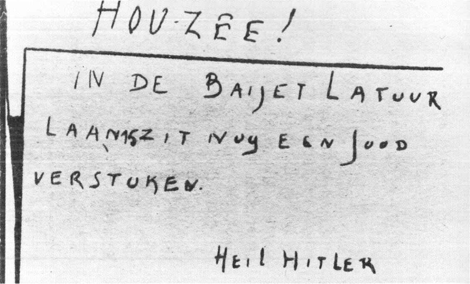 HOU-ZÊE!
IN DE BAIJET LATUUR
LAAN 15 ZIT NOG EEN JOOD
VERSTOKEN.
HEIL HITLER